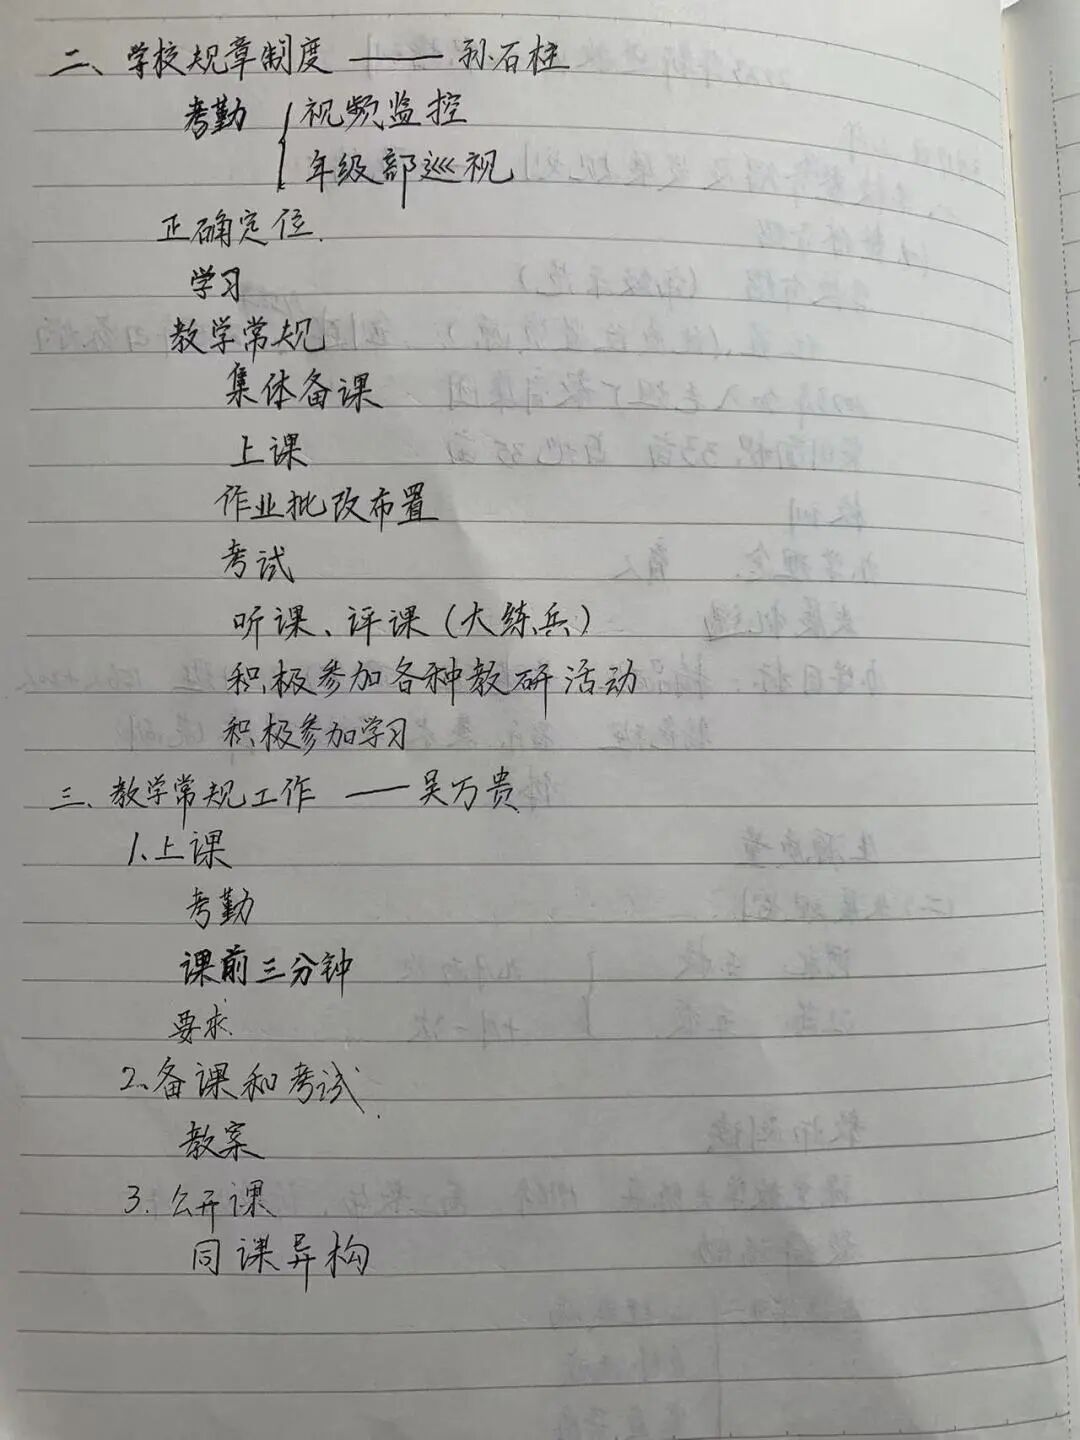 二、学校规章制度 —— 孙石柱
考勤 { 视频监控
年级部巡视
正确定位.
学习
教学常规
集体备课
上课
作业批改布置
考试
听课、评课(大练兵)
积极参加各种教研活动
积极参加学习
三、教学常规工作 —— 吴万贵
1、上课
考勤
课前三分钟
要求.
2、备课和考试.
教案
3. 公开课
同课异构